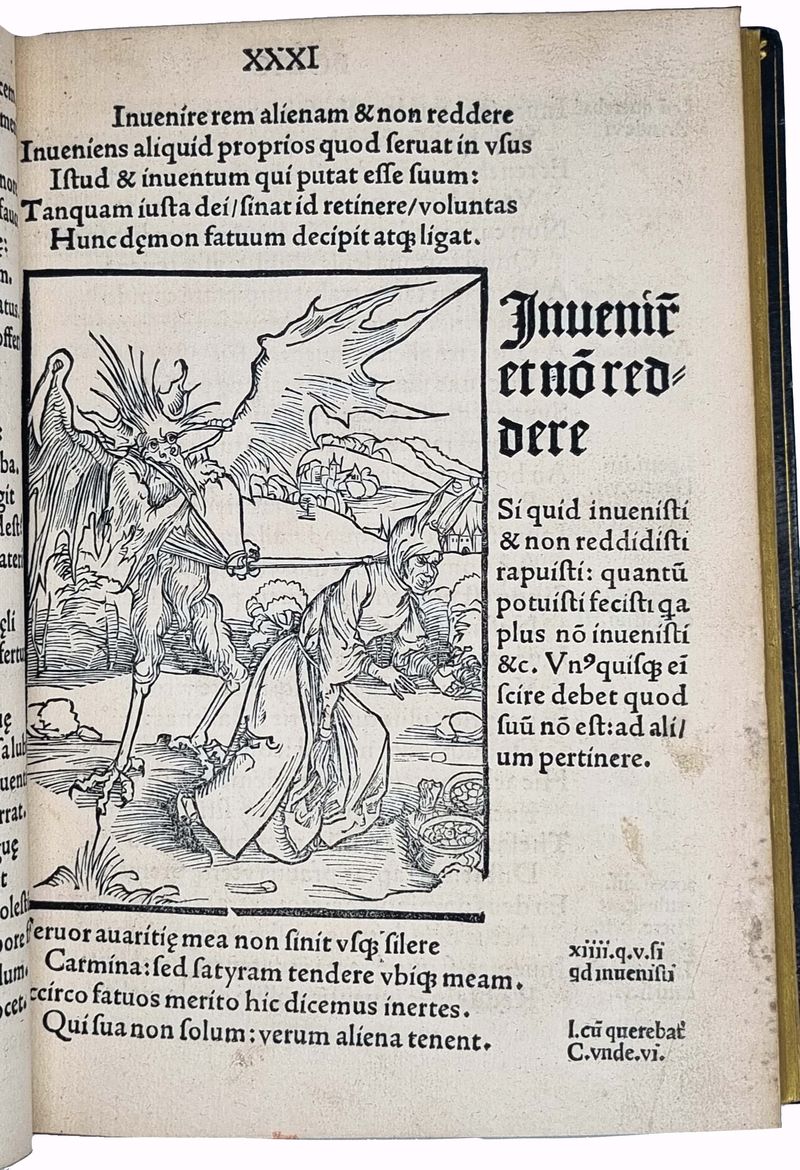 XXXI
Inuenire rem alienam & non reddere
Inueniens aliquid proprios quod ſeruat in vſus
Iſtud & inuentum qui putat eſſe ſuum:
Tanquam iuſta dei/ſinat id retinere/voluntas
Hunc dęmon fatuum decipit atqꝫ ligat.
Inuenir̄
et nō red⸗
dere
Si quid inueniſti
& non reddidiſti
rapuiſti: quantū
potuiſti feciſti qa
plus nō inueniſti
&c. Vnꝰquiſqꝫ eī
ſcire debet quod
ſuū nō eſt: ad ali/
um pertinere.
eruor auaritię mea non ſinit vſqꝫ ſilere
Carmina: ſed ſatyram tendere vbiqꝫ meam.
ccirco fatuos merito hic dicemus inertes.
Qui ſua non ſolum: verum aliena tenent.
xiiii.q.v.ſi
qd inueniſti
I.cū querebat᷑
C.vnde.vi.